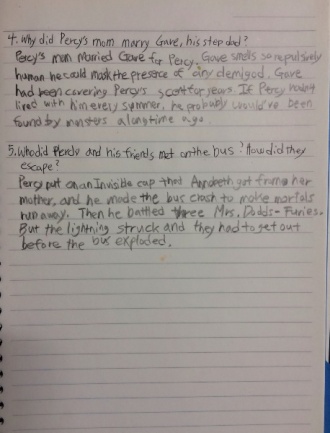 4. Why did Percy's mom marry Gave, his step dad?
Percy's mom married Gave for Percy. Gave smells so repulsively
human he could mask the presece of any demigod. Gave
had been covering Percy's scent for years. If Percy hadn't
lived with him every summer, he probably would've been
found by monsters a long time ago.
5. Who did Percy and his friends met on the bus? How did they
escape?
Percy put on an Invisible cap that Anndbeth got from her
mother, and he made the bus crash to make mortals
run away. Then he battled three Mrs. Dodds - Furies.
But the lightning struck and they had to get out
before the bus exploded.